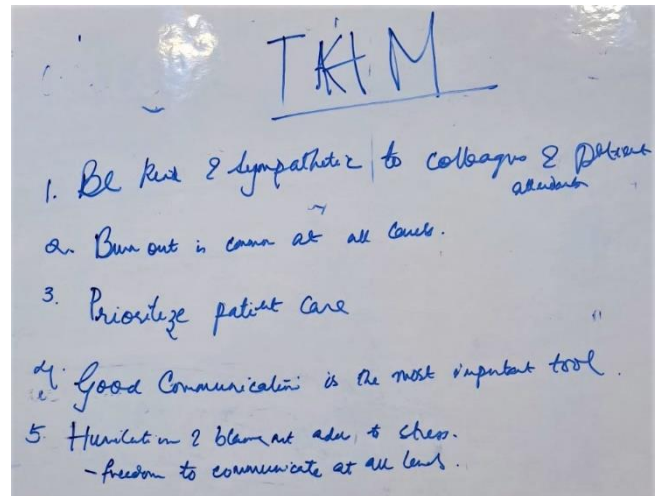 TKHM
1. Be kind & Sympathetic to colleagues & patient
attendants
2. Burn out is common at all levels.
3. Prioritize patient care
4. Good Communication is the most important tool.
5. Humiliation & blame adds to stress.
- freedom to communicate at all levels.